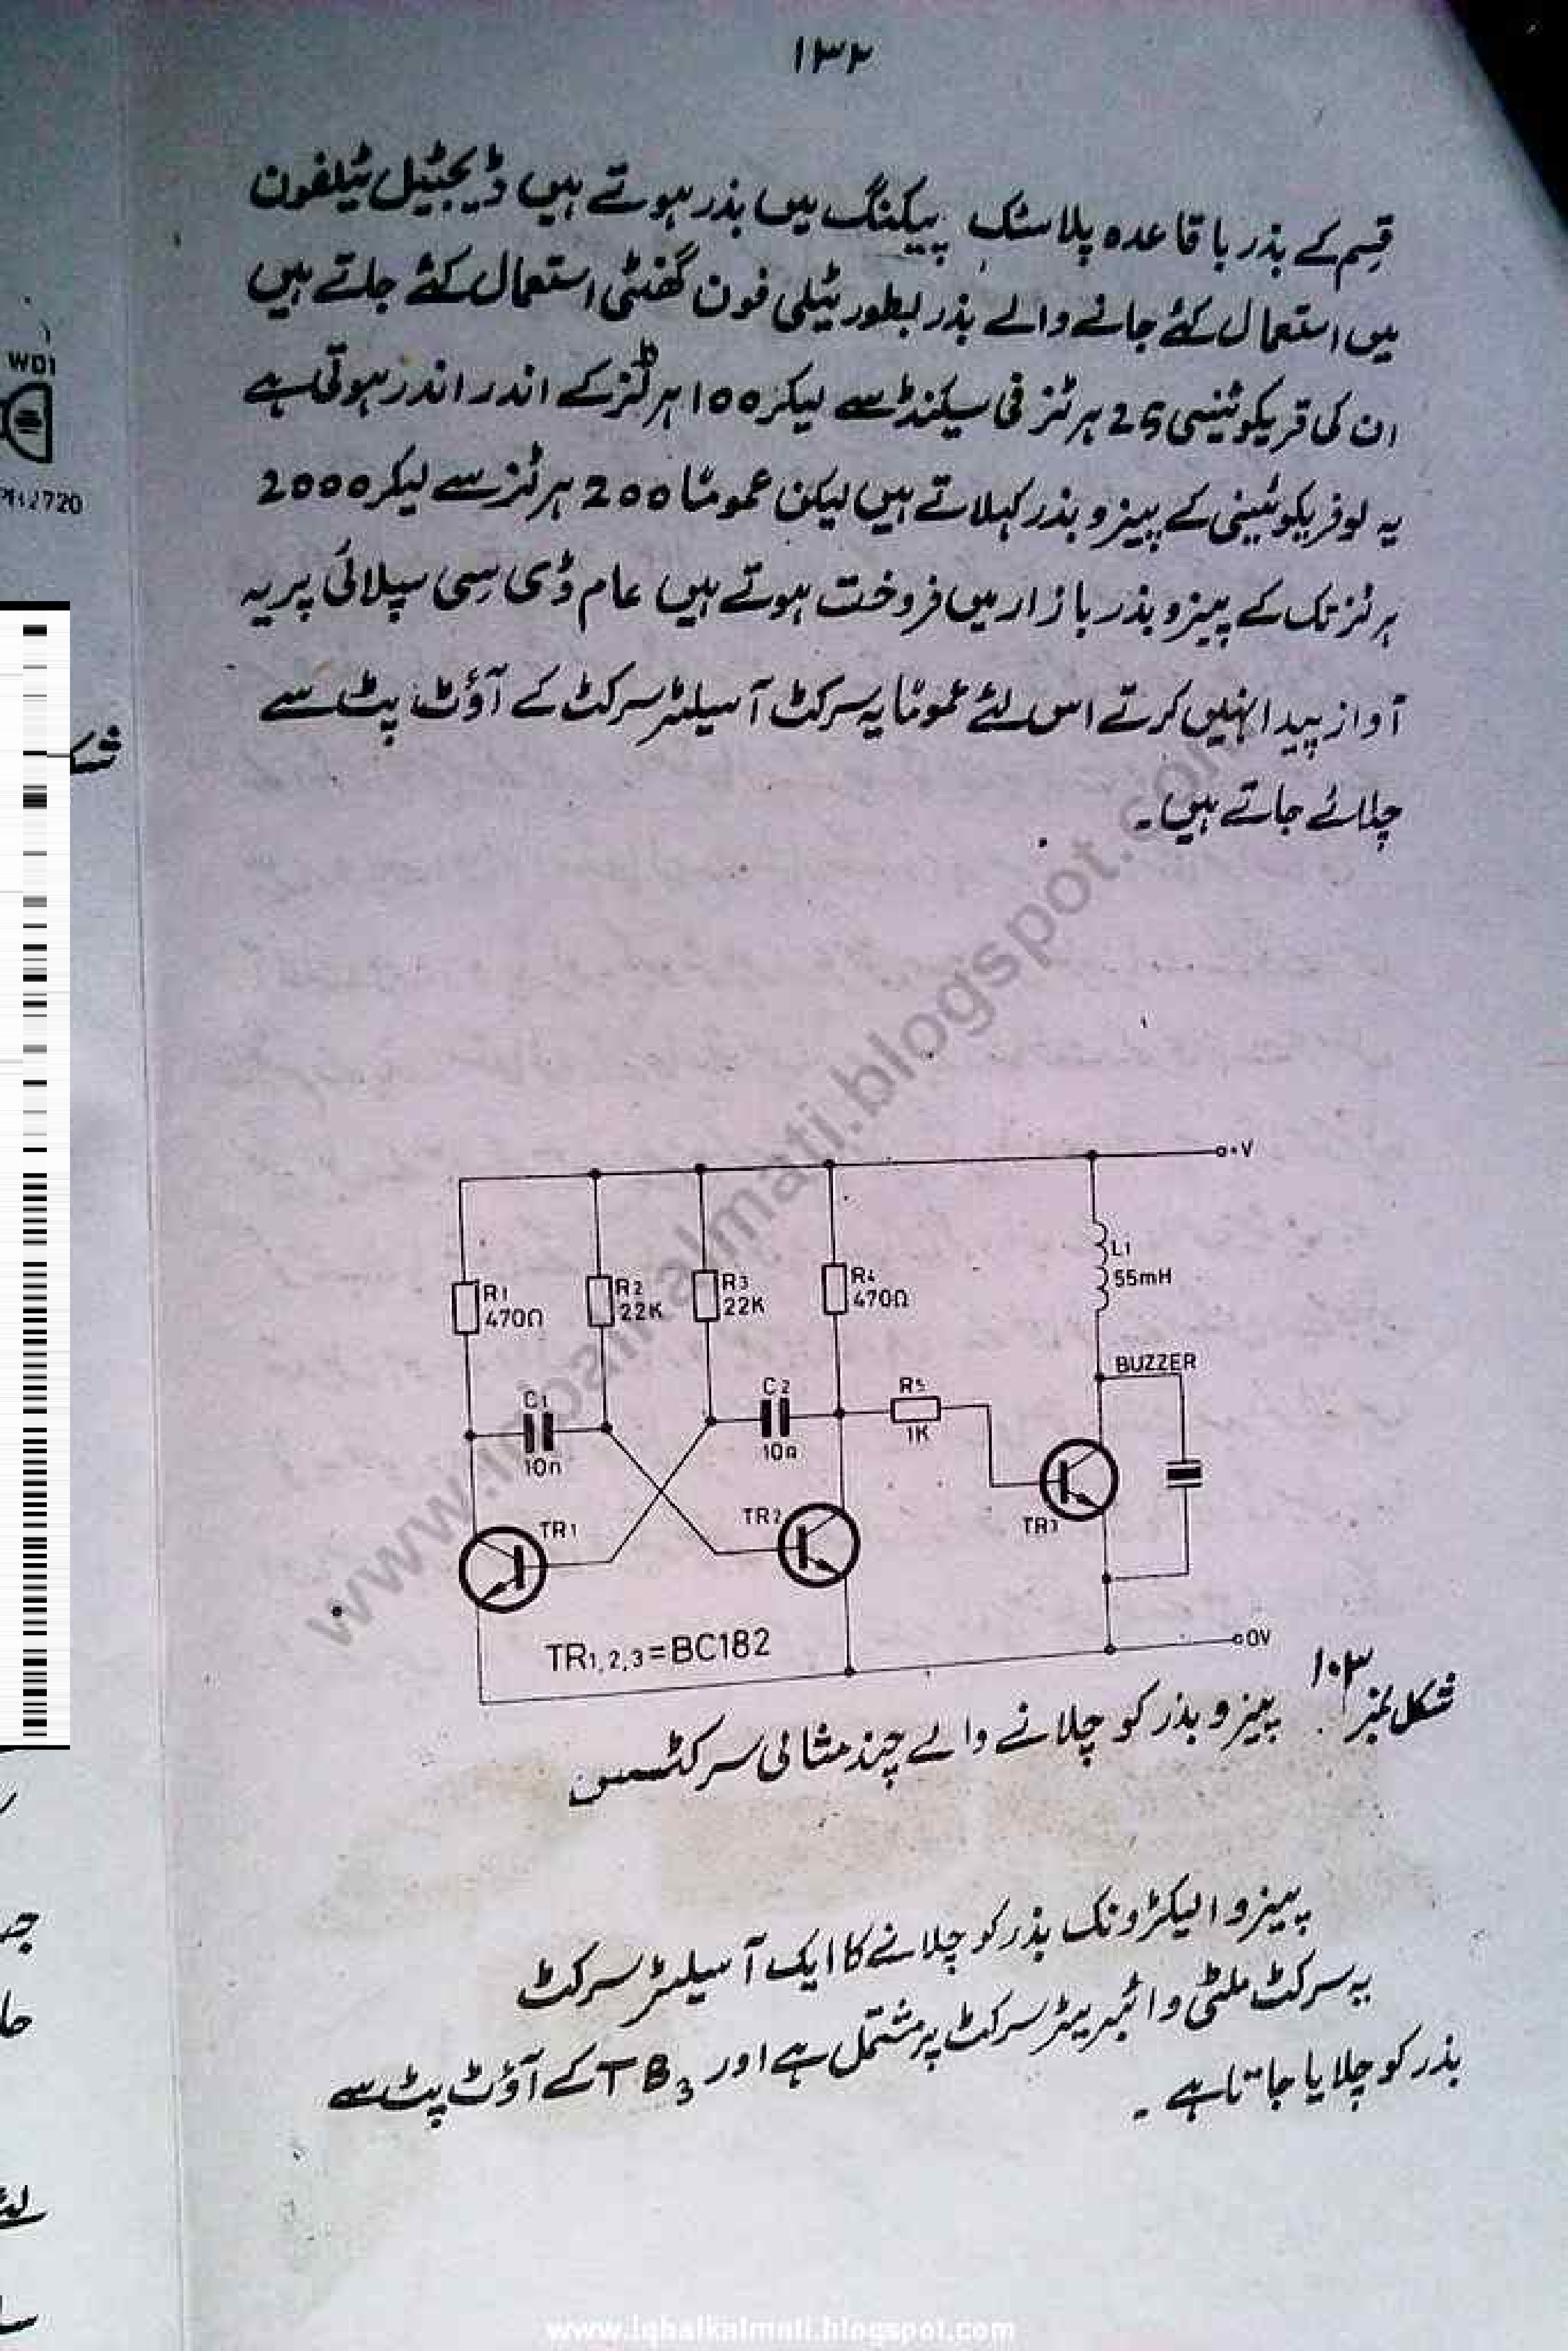 ۱۳۲
قسم کے بذر باقاعدہ پلاسٹک پیکنگ میں بذر ہوتے ہیں ڈیجیٹیل ٹیلفون
میں استعمال کئے جانے والے بذر بطور ٹیلی فون گھنٹی استعمال کئے جاتے ہیں
ان کی فریکوئینسی 25 ہرٹز فی سیکنڈ سے لیکر 100 ہرٹز کے اندر اندر ہوتی ہے
یہ لو فریکوئینی کے پیزو بذر کہلاتے ہیں لیکن عموماً 200 ہرٹز سے لیکر 2000
ہرٹز تک کے پیزو بذر بازار میں فروخت ہوتے ہیں عام ڈی سی سپلائی پر یہ
آواز پیدا نہیں کرتے اس لئے عموماً یہ سرکٹ آسیلیٹر سرکٹ کے آؤٹ پٹ سے
چلائے جاتے ہیں۔
+V
L1
55mH
R1
470Ω
R2
22K
R3
22K
R4
470Ω
BUZZER
C1
10n
C2
10n
R5
1K
TR1
TR2
TR3
TR1,2,3=BC182
0V
شکل نمبر ۱۰۳ پیزو بذر کو چلانے والے چند مثالی سرکٹس
پیزو الیکٹرونک بذر کو چلانے کا ایک آسیلیٹر سرکٹ
یہ سرکٹ ملٹی وائبریٹر سرکٹ پر مشتمل ہے اور TB3 کے آؤٹ پٹ سے
بذر کو چلایا جاتا ہے۔
WD1
شکل
www.iqbalkalmati.blogspot.com
www.iqbalkalmati.blogspot.com